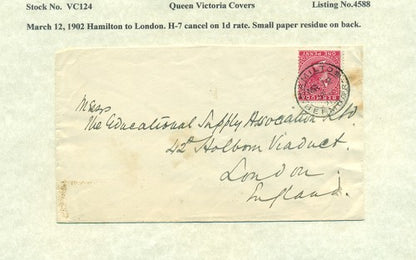 Stock No. VC124 Queen Victoria Covers Listing No.4588
March 12, 1902 Hamilton to London. H-7 cancel on 1d rate. Small paper residue on back.
ONE PENNY
HAMILTON
BERMUDA
Messrs
The Educational Supply Association Ltd
42 Holborn Viaduct
London
England.